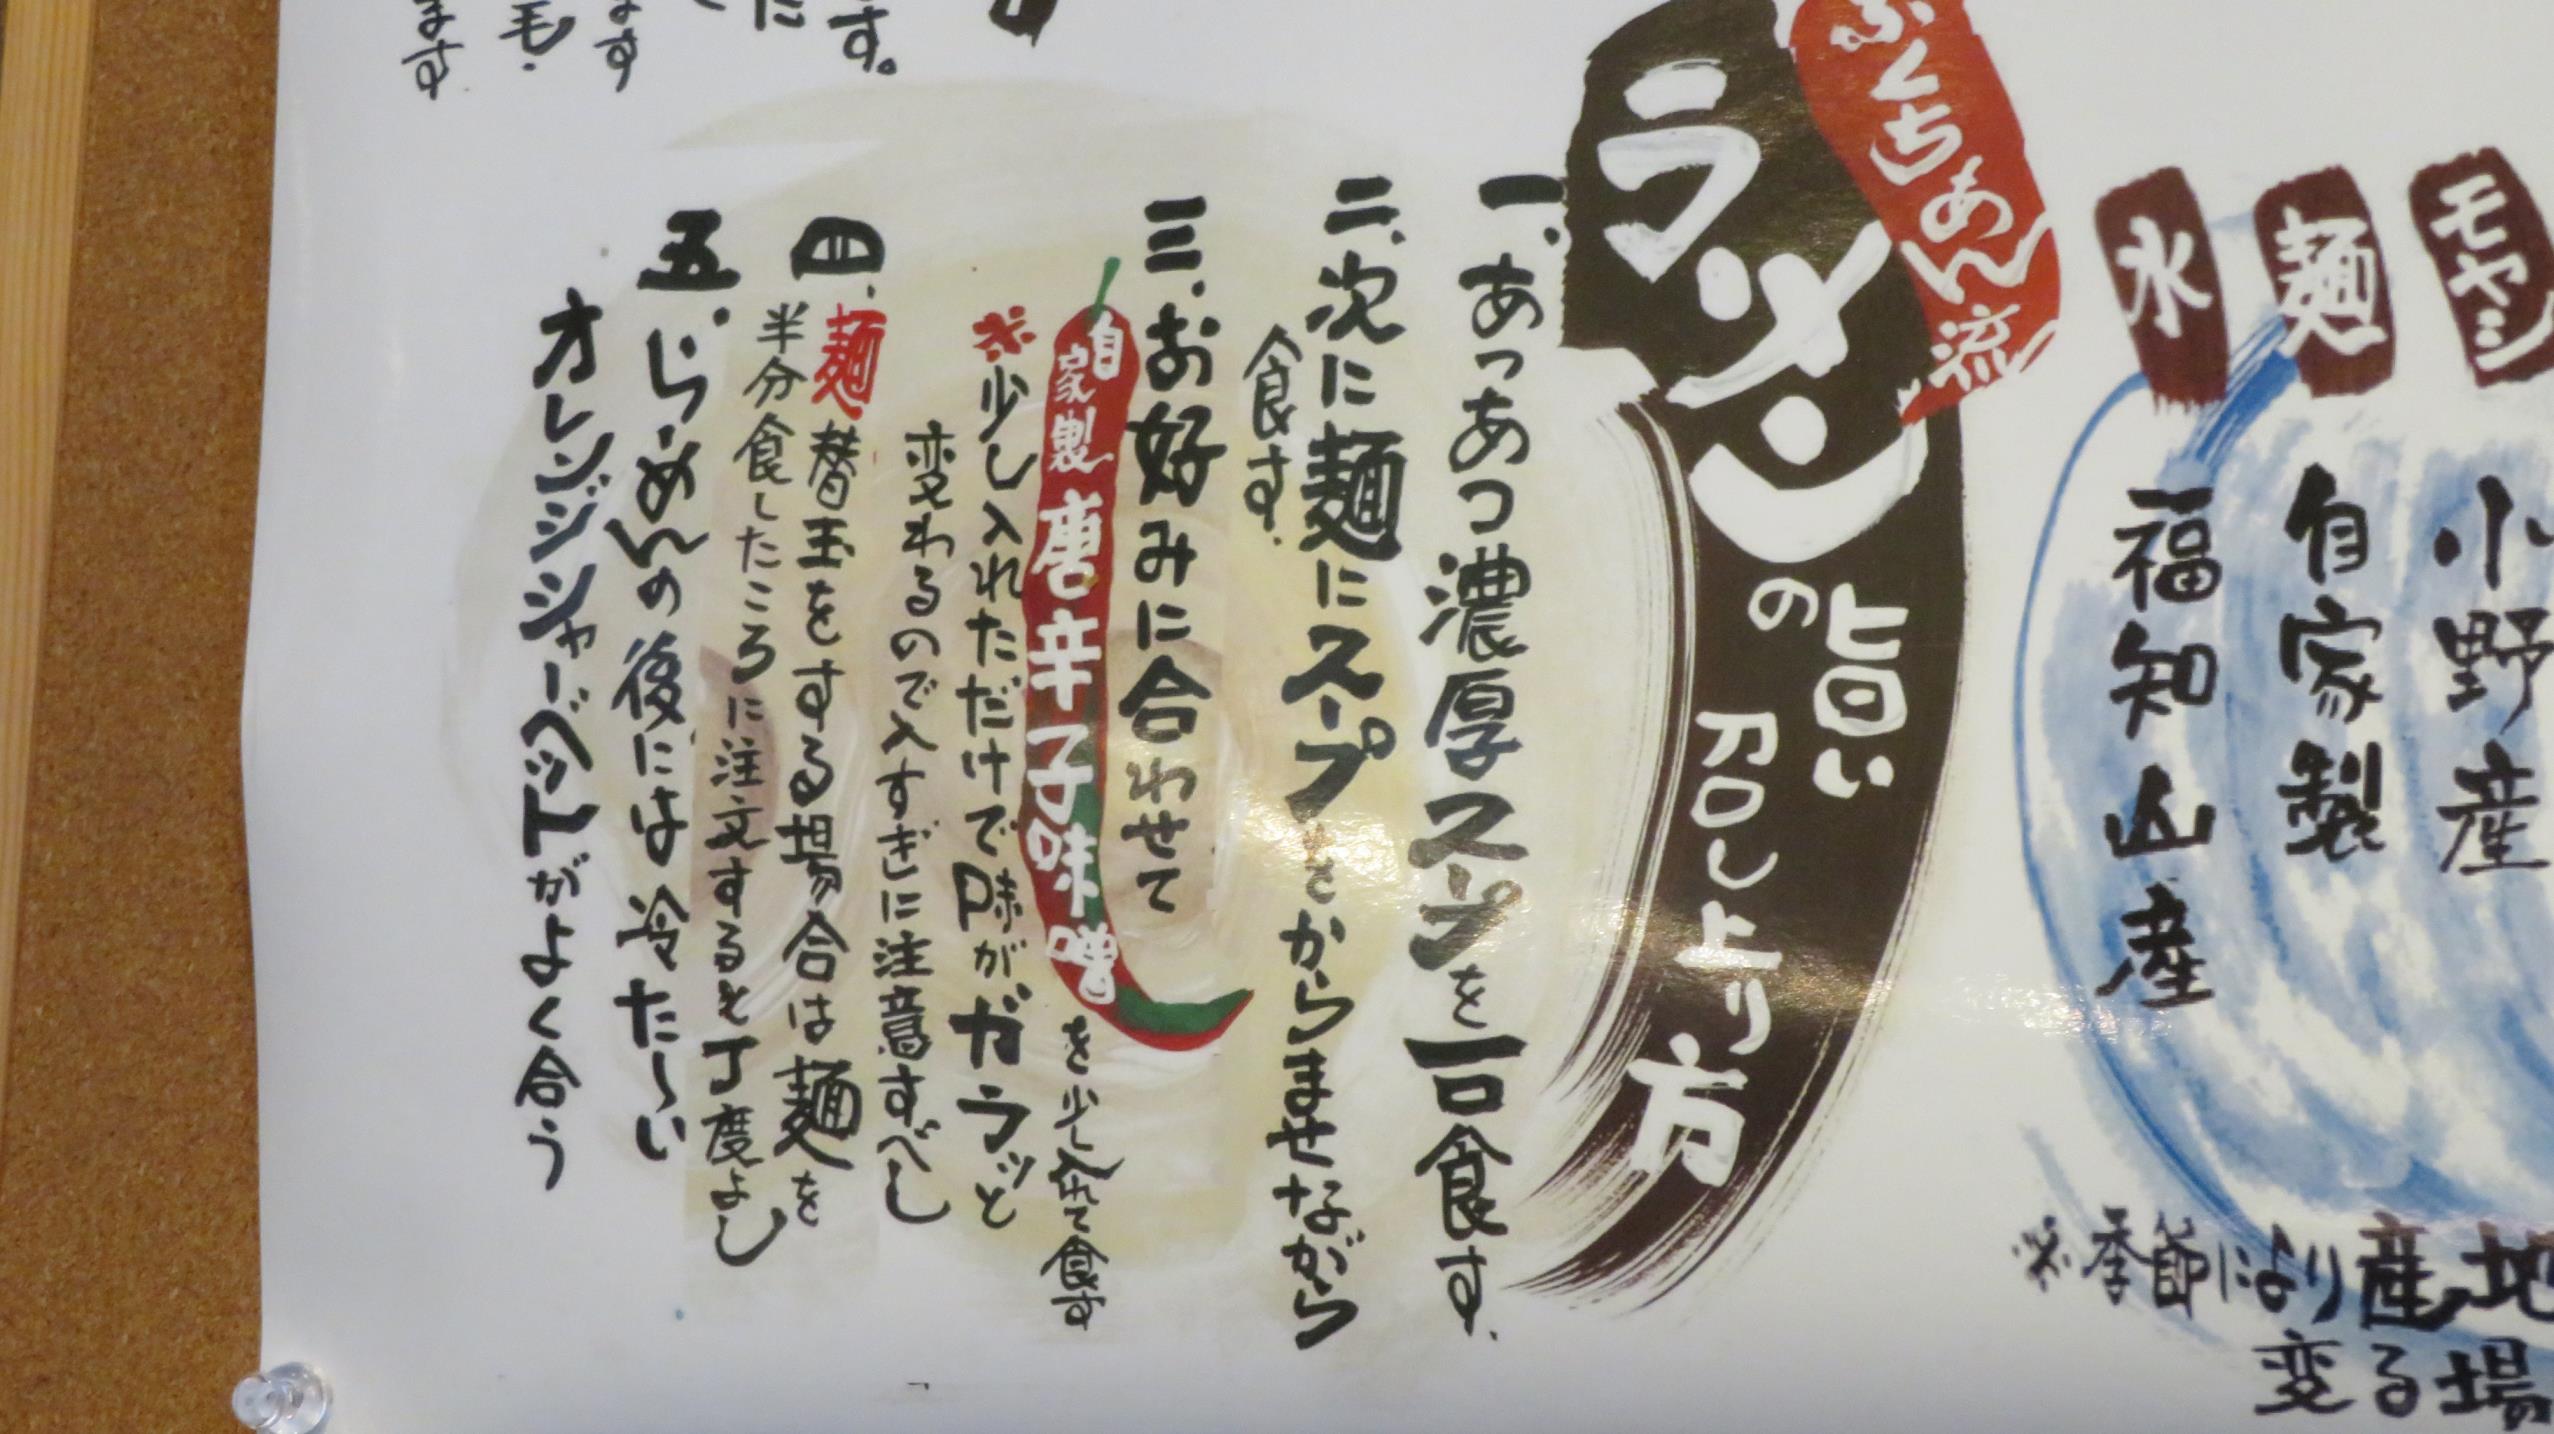 モヤシ 小野産
麺 自家製
水 福知山産
※季節により産地
変る場
ふくちあん流
ラーメンの
旨い
召し上り方
一、あっあつ濃厚スープを一口食す、
二、次に麺にスープをからませながら
食す、
三、お好みに合わせて
自家製唐辛子味噌を少し入れて食す
※少し入れただけで味がガラッと
変わるので入すぎに注意すべし
四、麺替玉をする場合は麺を
半分食したころに注文すると丁度よし
五、らーめんの後には冷たーい
オレンジシャーベットがよく合う
す。
た
ます
毛.
ます